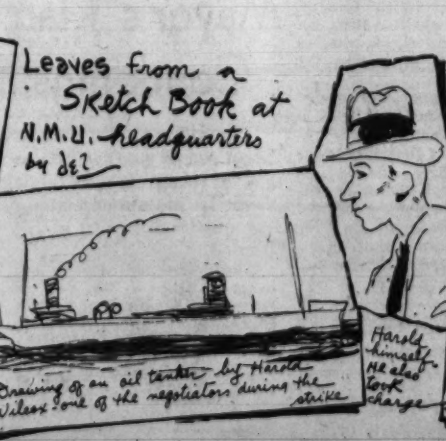 Leaves from a
Sketch Book at
N.M.U. headquarters
by del
Drawing of an oil tanker by Harold
Wilcox - one of the negotiators during the
strike
Harold
himself.
He also
took
charge